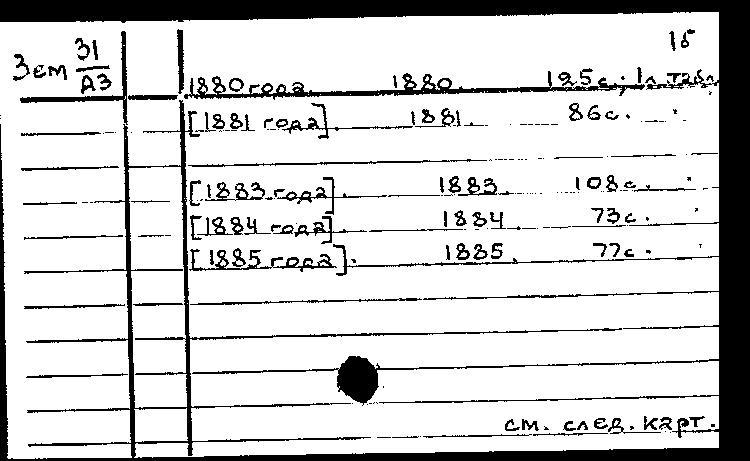 15
Зем 31/А3
1880 года. 1880. 125 с.; 1 л. табл.
[1881 года]. 1881. 86 с.
[1883 года]. 1883. 108 с.
[1884 года]. 1884. 73 с.
[1885 года]. 1885. 77 с.
см. след. карт.